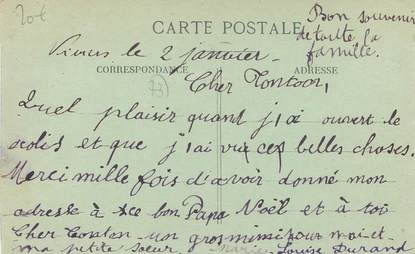 20€
Bon souvenir
de toute la
famille.
CARTE POSTALE
le 2 janvier
CORRESPONDANCE
ADRESSE
Cher Tonton,
Quel plaisir quand j'ai ouvert le
colis et que j'ai vu ces belles choses.
Merci mille fois d'avoir donné mon
adresse à ce bon Papa Noël et à toi
Cher tonton un gros mimi pour moi et
ma petite soeur Marie Louise Durand